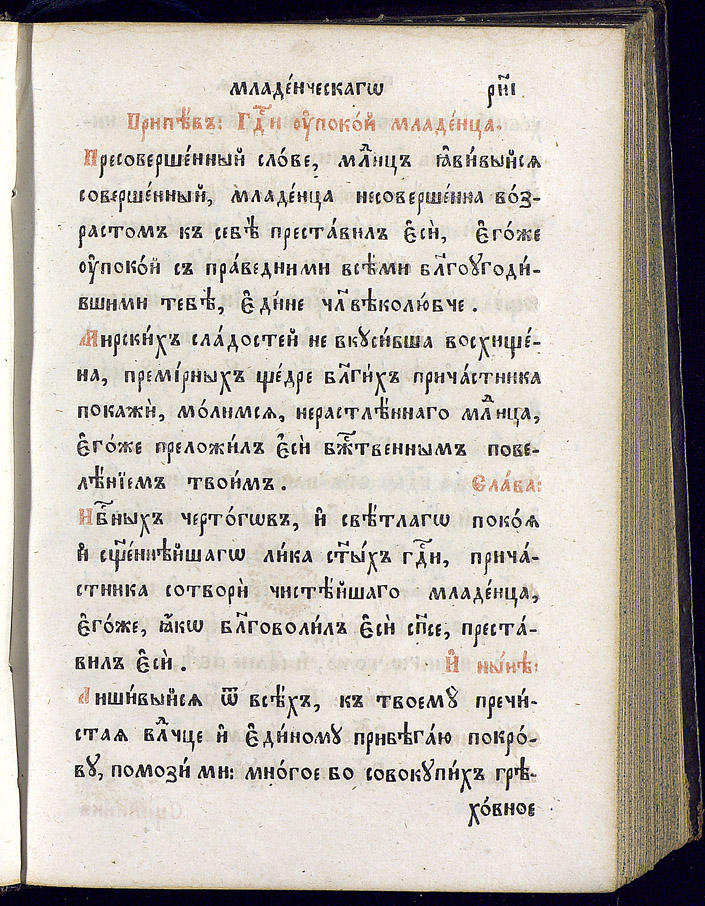 младе́нческагѡ рн҃і
Припѣ́въ: Гдⷭ҇и ᲂу҆поко́й младе́нца.
Пресоверше́нный сло́ве, млⷣнцъ ꙗ҆ви́выйсѧ
соверше́нный, младе́нца несоверше́нна во́з-
растомъ къ себѣ̀ преста́вилъ є҆сѝ, є҆го́же
ᲂу҆поко́й съ пра́ведними всѣ́ми бл҃гоꙋгоди́-
вшими тебѣ̀, є҆ди́не чл҃вѣколю́бче.
Мирски́хъ сла́достей не вкꙋси́вша восхище́-
на, преми́рныхъ ще́дре бл҃ги́хъ прича́стника
покажѝ, мо́лимсѧ, нерастлѣ́ннаго млⷣнца,
є҆го́же преложи́лъ є҆сѝ бж҃твеннымъ пове-
лѣ́нїемъ твои́мъ. Сла́ва:
Нб҇ныхъ черто́гѡвъ, и҆ свѣ́тлагѡ поко́ѧ
и҆ сщ҃е́ннѣйшагѡ ли́ка ст҃ы́хъ гдⷭ҇и, прича́-
стника сотворѝ чистѣ́йшаго младе́нца,
є҆го́же, ꙗ҆́кѡ бл҃говоли́лъ є҆сѝ сп҃се, преста́-
вилъ є҆сѝ. И҆ ны́нѣ:
Лиши́выйсѧ ѿ всѣ́хъ, къ твоемꙋ̀ пречи́-
стаѧ влⷣчце и҆ є҆ди́номꙋ прибѣга́ю покро́-
вꙋ, помози́ ми: мно́гое бо совокꙋпи́хъ грѣ-
хо́вное